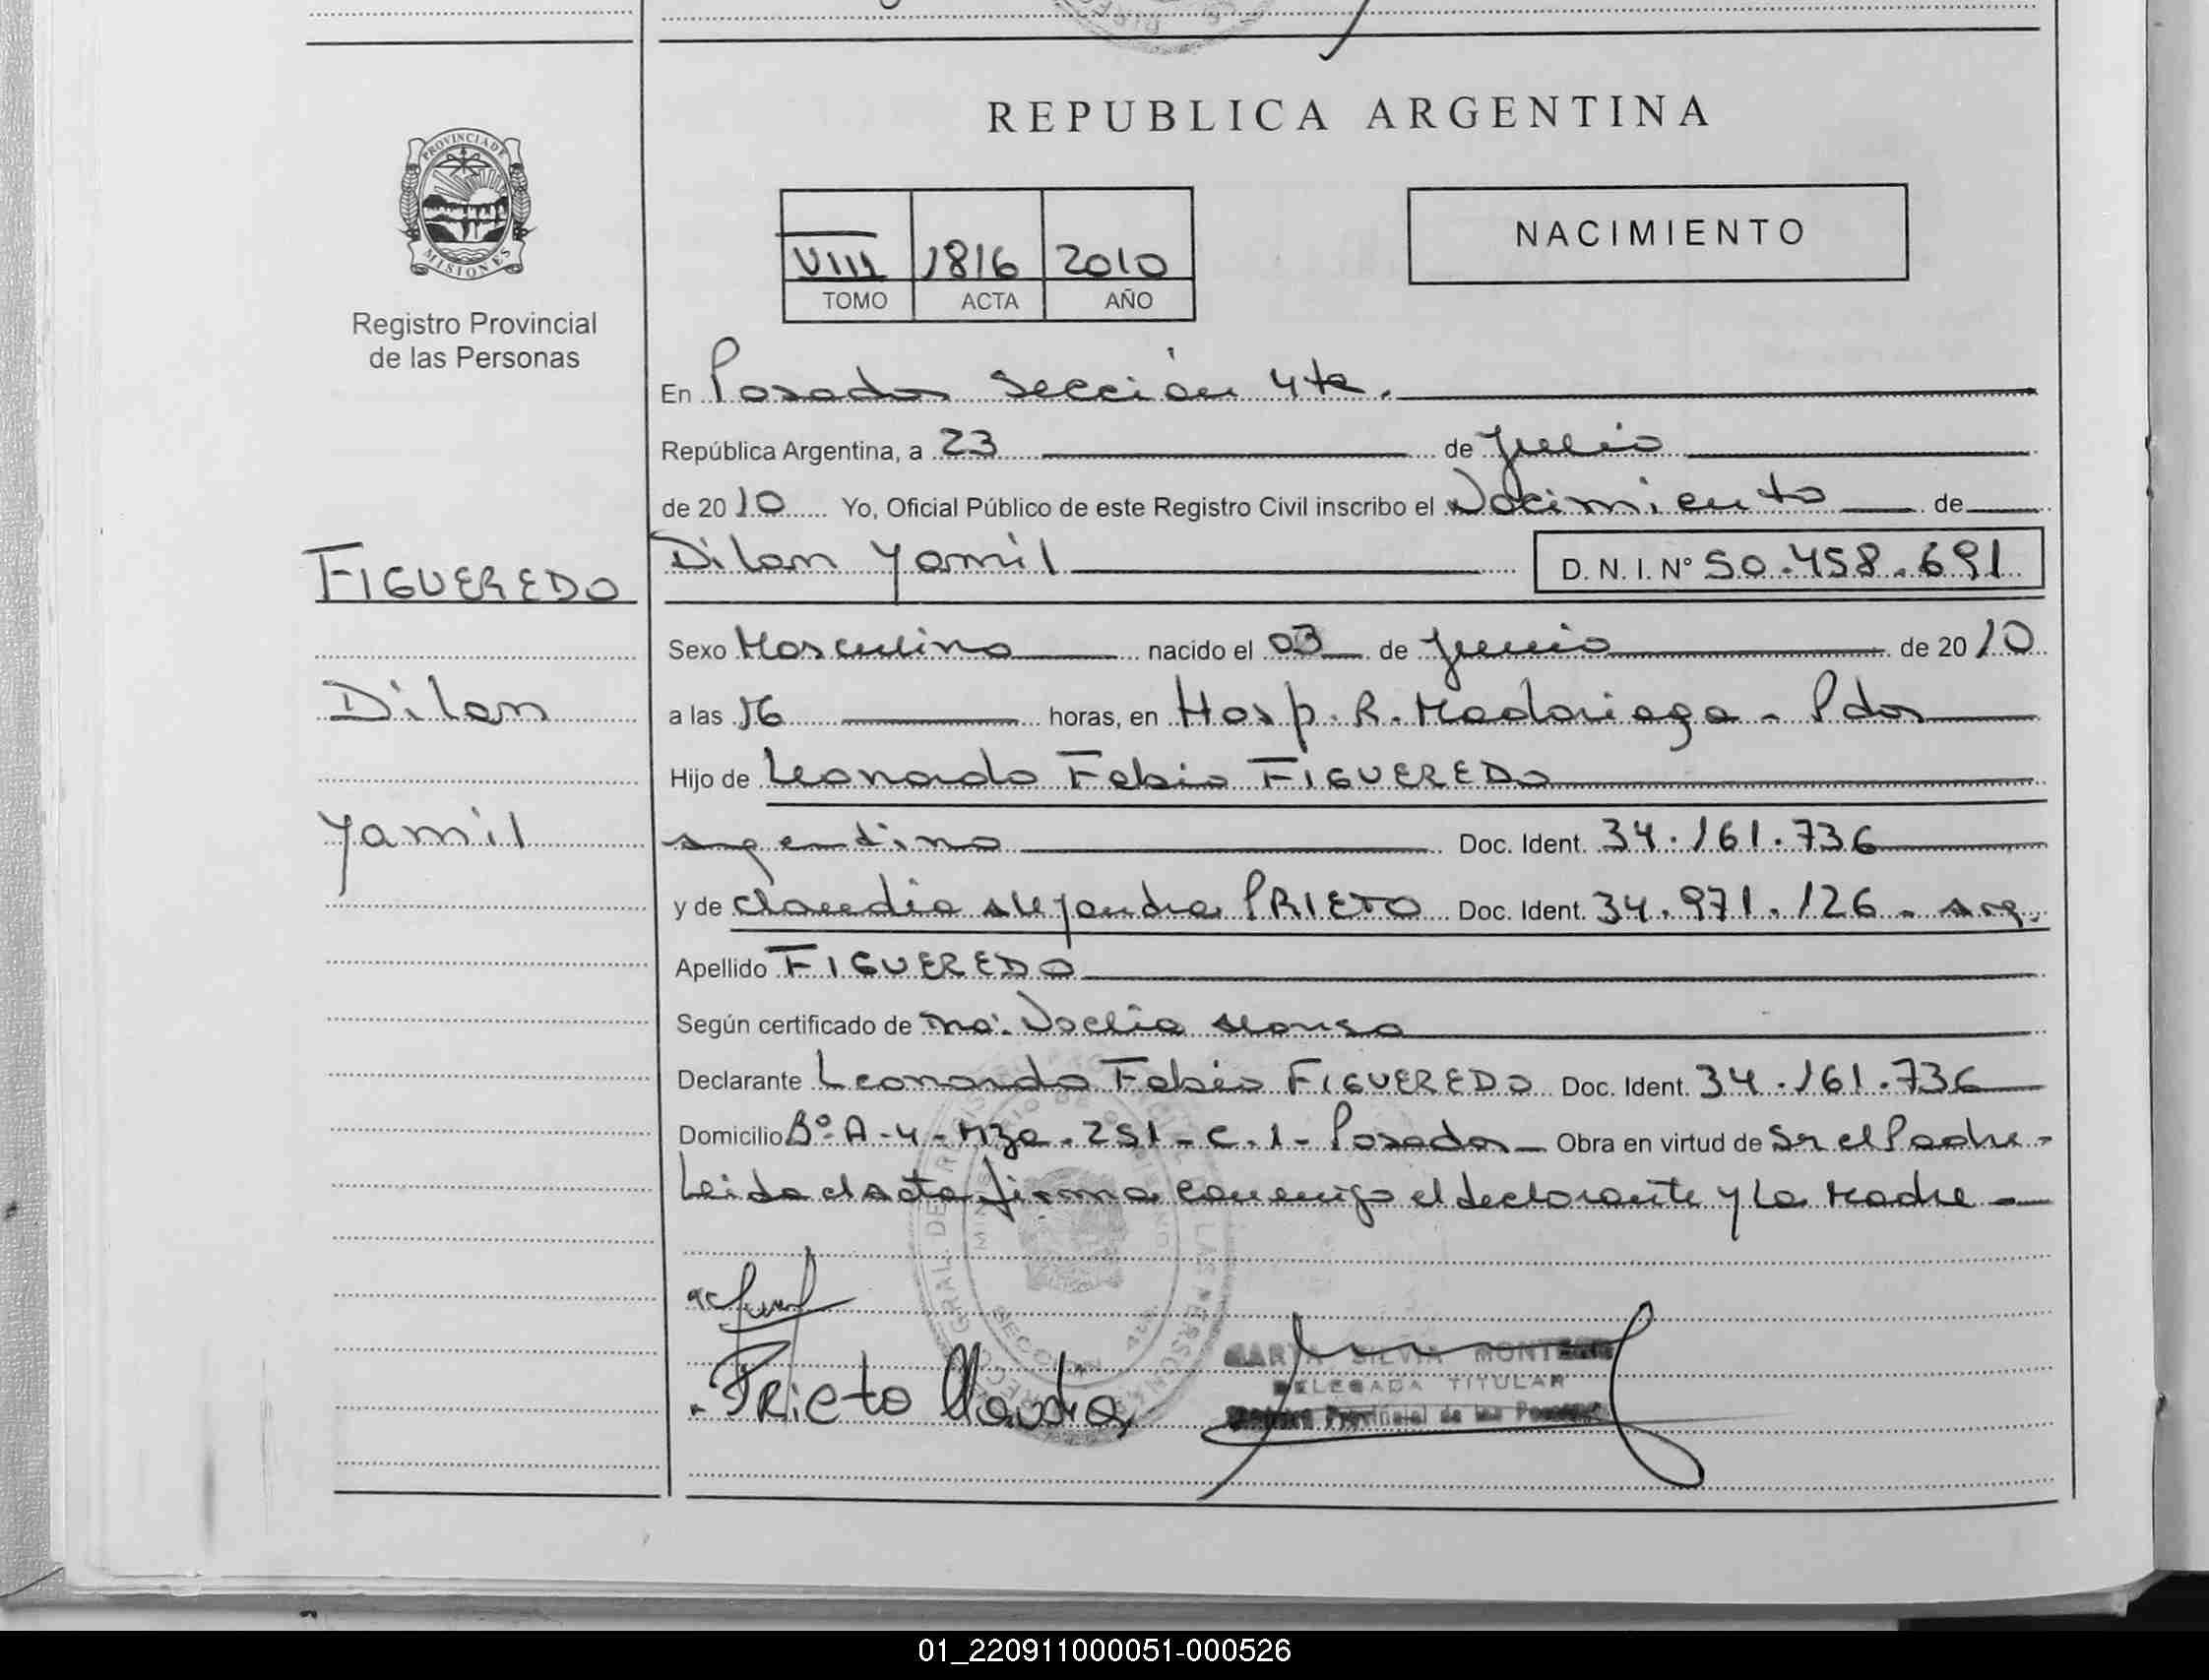 REPUBLICA ARGENTINA
PROVINCIA DE
MISIONES
Registro Provincial
de las Personas
VIII 1816 2010
TOMO ACTA AÑO
NACIMIENTO
En Posadas Sección 4ta.
República Argentina, a 23 de Julio
de 2010 Yo, Oficial Público de este Registro Civil inscribo el Nacimiento de
FIGUEREDO
Dilan Yamil D. N. I. N° 50.458.691
Sexo Masculino nacido el 03 de Junio de 2010
Dilan
a las 16 horas, en Hosp. R. Madariaga - Pdas
Hijo de Leonardo Fabio FIGUEREDO
Yamil
argentino Doc. Ident. 34.161.736
y de Claudia Alejandra PRIETO Doc. Ident. 34.971.126 - arg.
Apellido FIGUEREDO
Según certificado de Ma. Noelia Alonso
Declarante Leonardo Fabio FIGUEREDO Doc. Ident. 34.161.736
Domicilio Bº A-4 - Mza - 251 - C. 1 - Posadas - Obra en virtud de Sr el Padre -
Leida el Acta firma conmigo el declarante y la Madre -
Prieto Claudia
MARTA SILVIA
DELEGADA TITULAR
Provincial de las
01_220911000051-000526